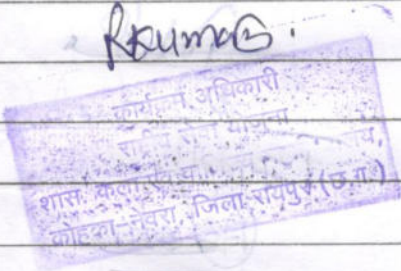 RKumar.
कार्यक्रम अधिकारी
राष्ट्रीय सेवा योजना
शास. कला एवं
कोहका-नेवरा, जिला-रायपुर (छ.ग.)